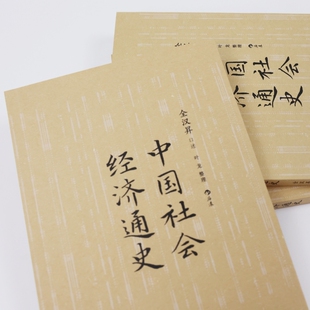 中国社会
经济通史
全汉昇 口述 叶龙 整理
中国社会
经济通史